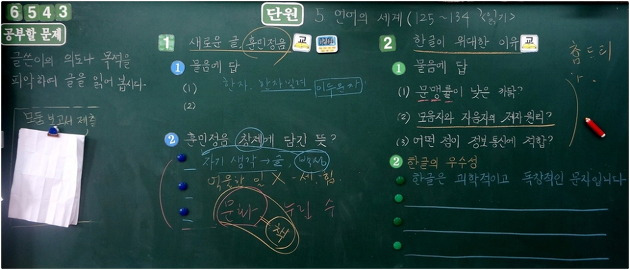 6 5 4 3
단원 5. 언어의 세계 (125~134
공부할 문제
글쓴이의 의도나 목적을
파악하며 글을 읽어 봅시다.
모둠 보고서 제출
1 새로운 글, 훈민정음 교
1 물음에 답
(1) 한자
(2)
2 훈민정음 창제에 담긴 뜻?
자기 생각→글, 백성
억울한 일 X
문화 누릴 수
책
2 한글이 위대한 이유 교
1 물음에 답
(1) 문맹률이 낮은 까닭?
(2) 모음자와 자음자의 제자 원리?
(3) 어떤 점이 정보통신에 적합?
2 한글의 우수성
한글은 과학적이고 독창적인 문자입니다